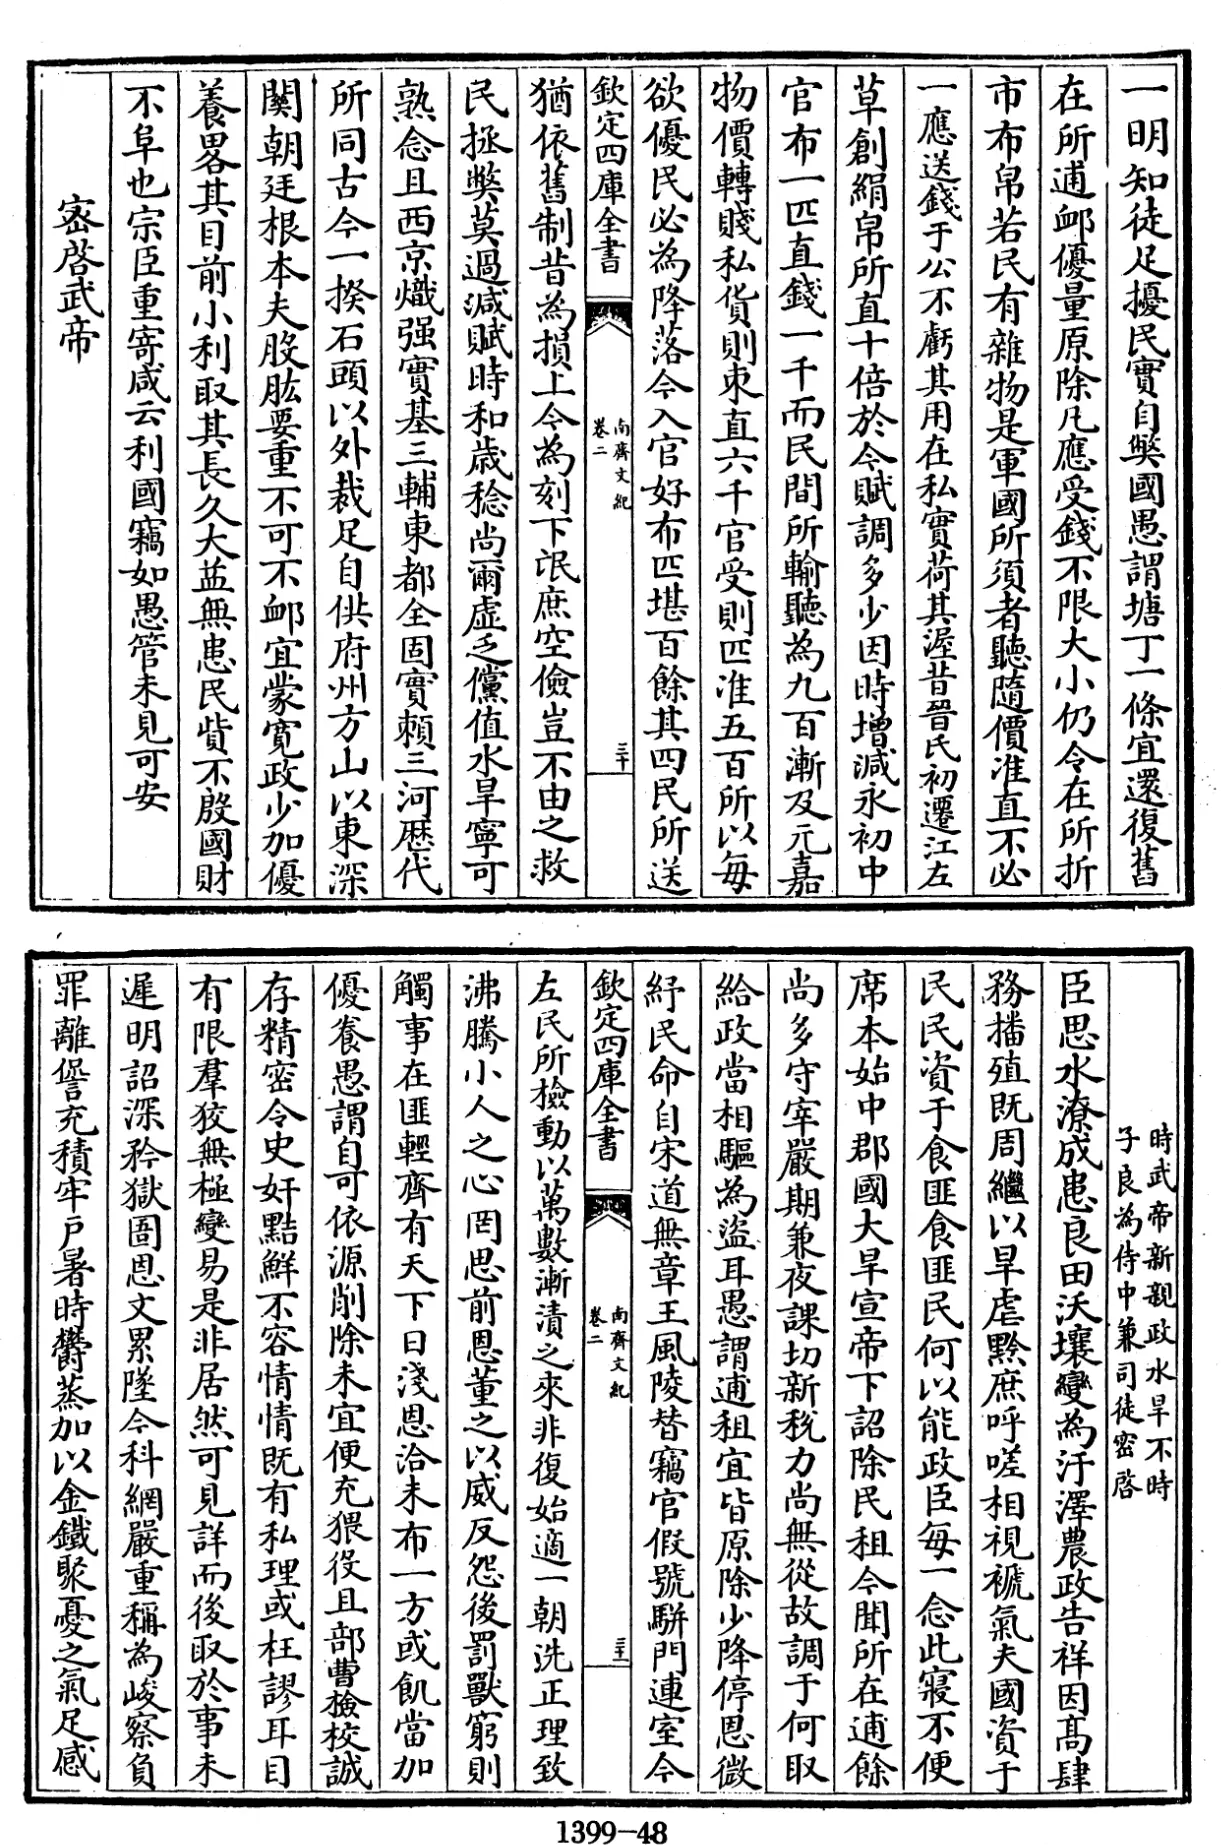 一明知徒足擾民實自弊國愚謂塘丁一條宜還復舊
在所逋䘏優量原除凡應受錢不限大小仍令在所折
市布帛若民有雜物是軍國所須者聽隨價准直不必
一應送錢于公不虧其用在私實荷其渥昔晉氏初遷江左
草創絹帛所直十倍於今賦調多少因時增減永初中
官布一匹直錢一千而民間所輸聽為九百漸及元嘉
物價轉賤私貨則束直六千官受則匹准五百所以每
欲優民必為降落今入官好布匹堪百餘其四民所送
欽定四庫全書
南齊文紀
卷二
三十
猶依舊制昔為損上今為刻下氓庶空儉豈不由之救
民拯弊莫過減賦時和歲稔尚爾虛乏儻值水旱寧可
熟念且西京熾强實基三輔東都全固實賴三河歷代
所同古今一揆石頭以外裁足自供府州方山以東深
關朝廷根本夫股肱要重不可不䘏宜蒙寬政少加優
養畧其目前小利取其長久大益無患民貲不殷國財
不阜也宗臣重寄咸云利國竊如愚管未見可安
密啓武帝
時武帝新親政水旱不時
子良為侍中兼司徒密啓
臣思水潦成患良田沃壤變為汙澤農政告祥因髙肆
務播殖既周繼以旱虐黔庶呼嗟相視褫氣夫國資于
民民資于食匪食匪民何以能政臣每一念此寢不便
席本始中郡國大旱宣帝下詔除民租今聞所在逋餘
尚多守宰嚴期兼夜課切新稅力尚無從故調于何取
給政當相驅為盜耳愚謂逋租宜皆原除少降停恩微
紓民命自宋道無章王風陵替竊官假號駢門連室今
欽定四庫全書
南齊文紀
卷二
三十一
左民所檢動以萬數漸漬之來非復始適一朝洗正理致
沸騰小人之心罔思前恩董之以威反怨後罰獸窮則
觸事在匪輕齊有天下日淺恩洽未布一方或飢當加
優養愚謂自可依源削除未宜便充猥役且部曹檢校誠
存精密令史奸黠鮮不容情情既有私理或枉謬耳目
有限羣狡無極變易是非居然可見詳而後取於事未
遲明詔深矜獄圄恩文累墜今科網嚴重稱為峻察負
罪離諐充積牢戶暑時鬱蒸加以金鐵聚憂之氣足感
1399-48